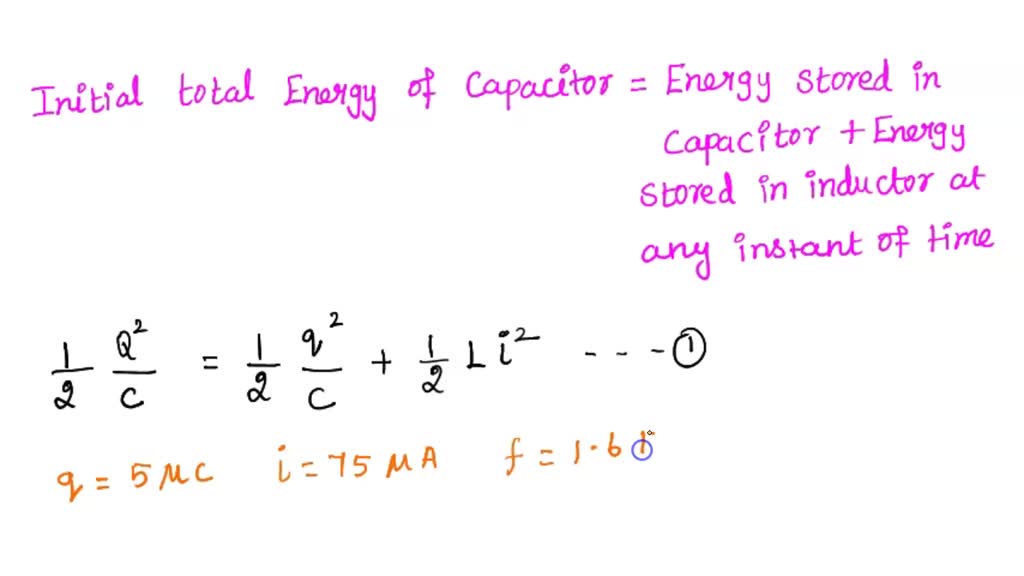 Initial total Energy of Capacitor = Energy stored in
Capacitor + Energy
stored in inductor at
any instant of time
1/2 Q²/C = 1/2 q²/C + 1/2 L i² - - - ①
q = 5 μC i = 75 μA f = 1.6